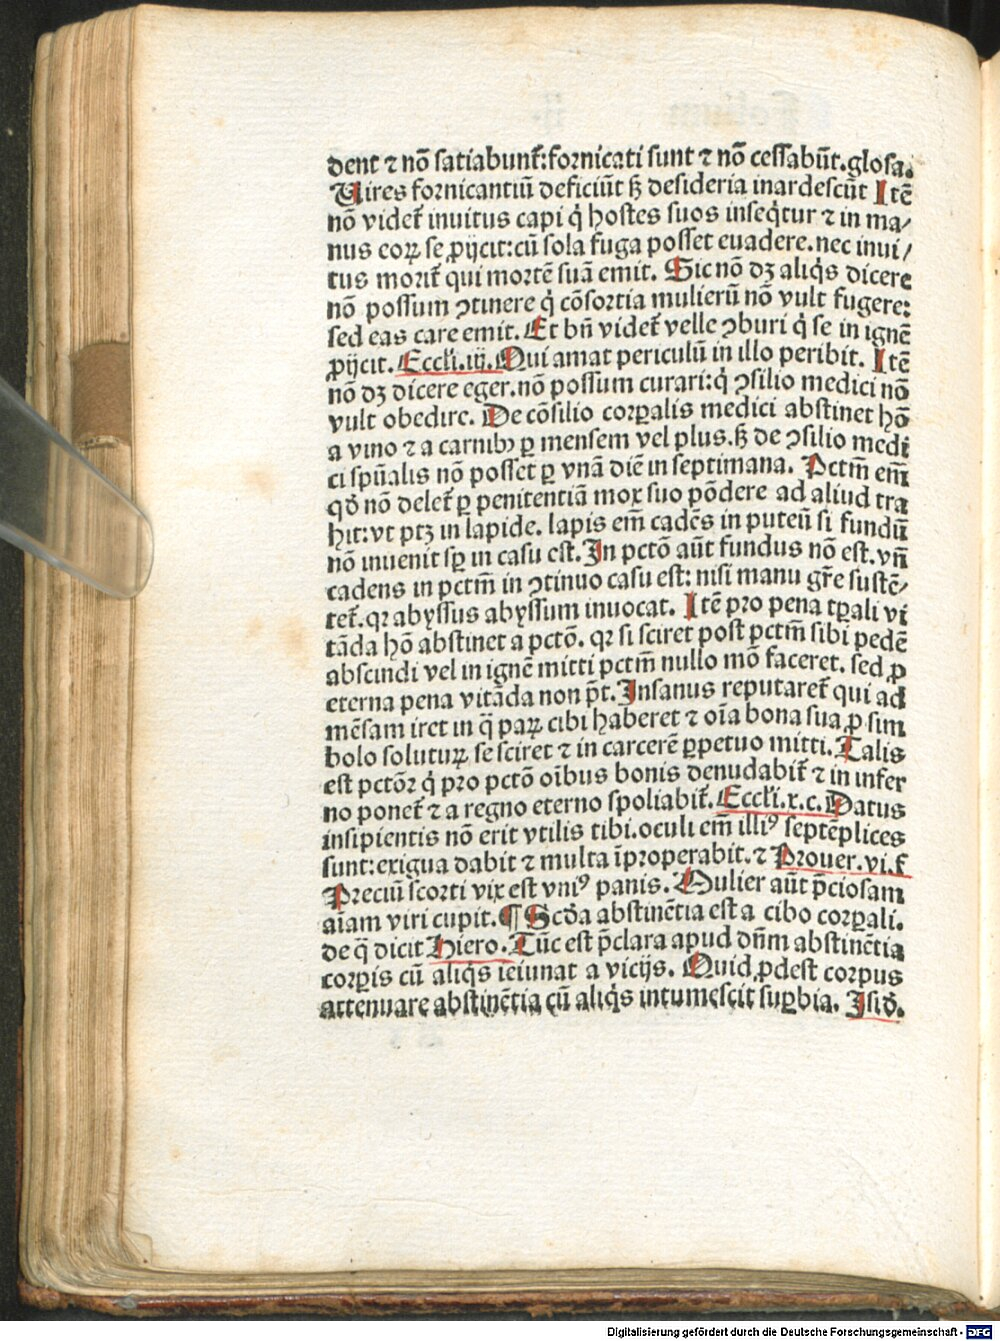 dent ⁊ nō satiabunt᷑:fornicati sunt ⁊ nō cessabūt.glosa.
Uires fornicantiū deficiūt sꝫ desideria inardescūt Itē
nō videt᷑ inuitus capi q̇ hostes suos inseq̇tur ⁊ in ma/
nus eoꝝ se ꝓijcit:cū sola fuga posset euadere.nec inui/
tus morit᷑ qui mortē suā emit. Sic nō dꝫ aliq̇s dicere
nō possum ꝯtinere q̇ cōsortia mulierū nō vult fugere:
sed eas care emit. Et bn̄ videt᷑ velle ꝯburi q̇ se in ignē
ꝓijcit. Eccli.iij. Qui amat periculū in illo peribit. Itē
nō dꝫ dicere eger.nō possum curari:q̇ ꝯsilio medici nō
vult obedire. De cōsilio corꝑalis medici abstinet hō
a vino ⁊ a carnibꝫ ꝑ mensem vel plus.sꝫ de ꝯsilio medi
ci spūalis nō posset ꝑ vnā diē in septimana. Pctm̄ em̄
qd̄ nō delet᷑ ꝑ penitentiā mox suo pōdere ad aliud tra
hit:vt ptꝫ in lapide. lapis em̄ cadēs in puteū si fundū
nō inuenit sꝑ in casu est. In pctō aūt fundus nō est.vn̄
cadens in pctm̄ in ꝯtinuo casu est: nisi manu gr̄e sustē/
tet᷑.qꝛ abyssus abyssum inuocat. Itē pro pena tꝑali vi
tāda hō abstinet a pctō. qꝛ si sciret post pctm̄ sibi pedē
abscindi vel in ignē mitti pctm̄ nullo mō faceret. sed ꝓ
eterna pena vitāda non pōt. Insanus reputaret᷑ qui ad
mēsam iret in q̄ paꝝ cibi haberet ⁊ oīa bona sua ꝓ sim
bolo solutuꝝ se sciret ⁊ in carcerē ꝑpetuo mitti. Talis
est pctōr q̇ pro pctō oībus bonis denudabit᷑ ⁊ in infer
no ponet᷑ ⁊ a regno eterno spoliabit᷑. Eccli.x.c. Datus
insipientis nō erit vtilis tibi.oculi em̄ illiꝰ septēplices
sunt:exigua dabit ⁊ multa īproperabit.⁊ Prouer.vi.f
Preciū scorti vix est vniꝰ panis. Mulier aūt p̄ciosam
aīam viri cupit. ¶ Scd̄a abstinētia est a cibo corꝑali.
de q̄ dicit Hiero. Tūc est p̄clara apud dn̄m abstinētia
corꝑis cū aliq̇s ieiunat a vicijs. Quid ꝓdest corpus
attenuare abstinētia cū aliq̇s intumescit suꝑbia. Isid̄.
Digitalisierung gefördert durch die Deutsche Forschungsgemeinschaft - DFG